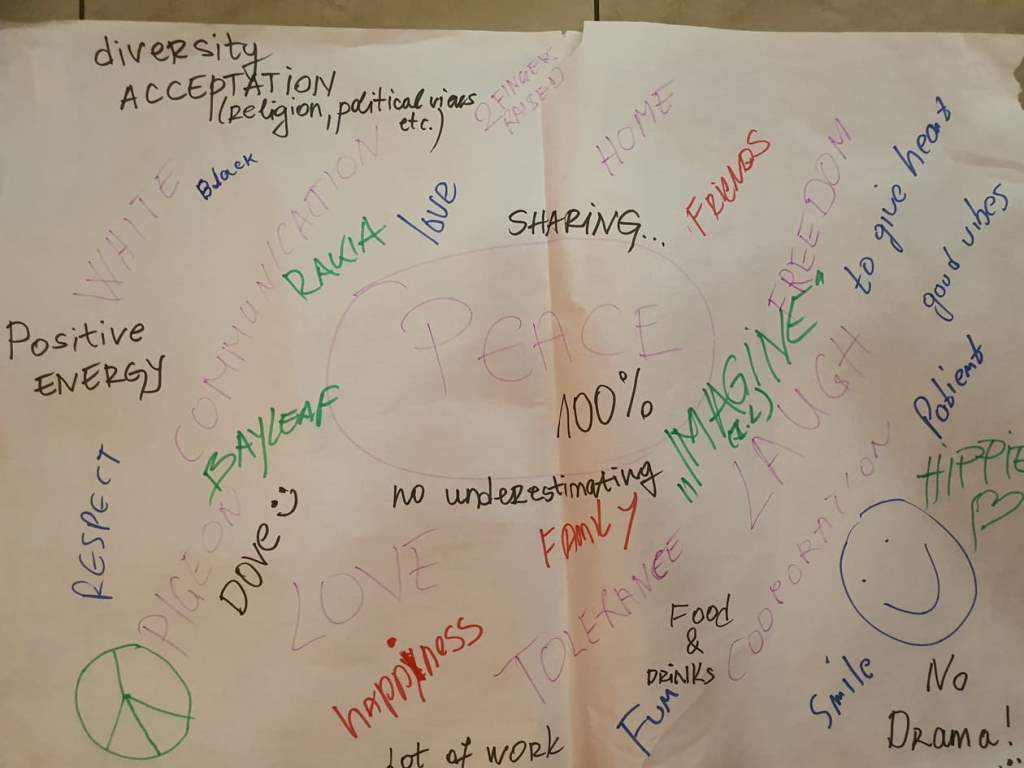 diversity
ACCEPTATION
(religion, political views
etc.)
2 FINGER
RAISED
HOME
WHITE
Black
COMMUNICATION
RAKIA
love
SHARING...
FRIENDS
FREEDOM
to give heart
good vibes
Positive
ENERGY
PEACE
100%
"IMAGINE"
(J.L)
LAUGH
Patient
HIPPIE
BAYLEAF
no underestimating
RESPECT
PIGEON
DOVE :)
LOVE
FAMILY
TOLERANCE
COOPORATION
happiness
Food
&
DRINKS
Fun
Smile
No
Drama!
...
Lot of WORK